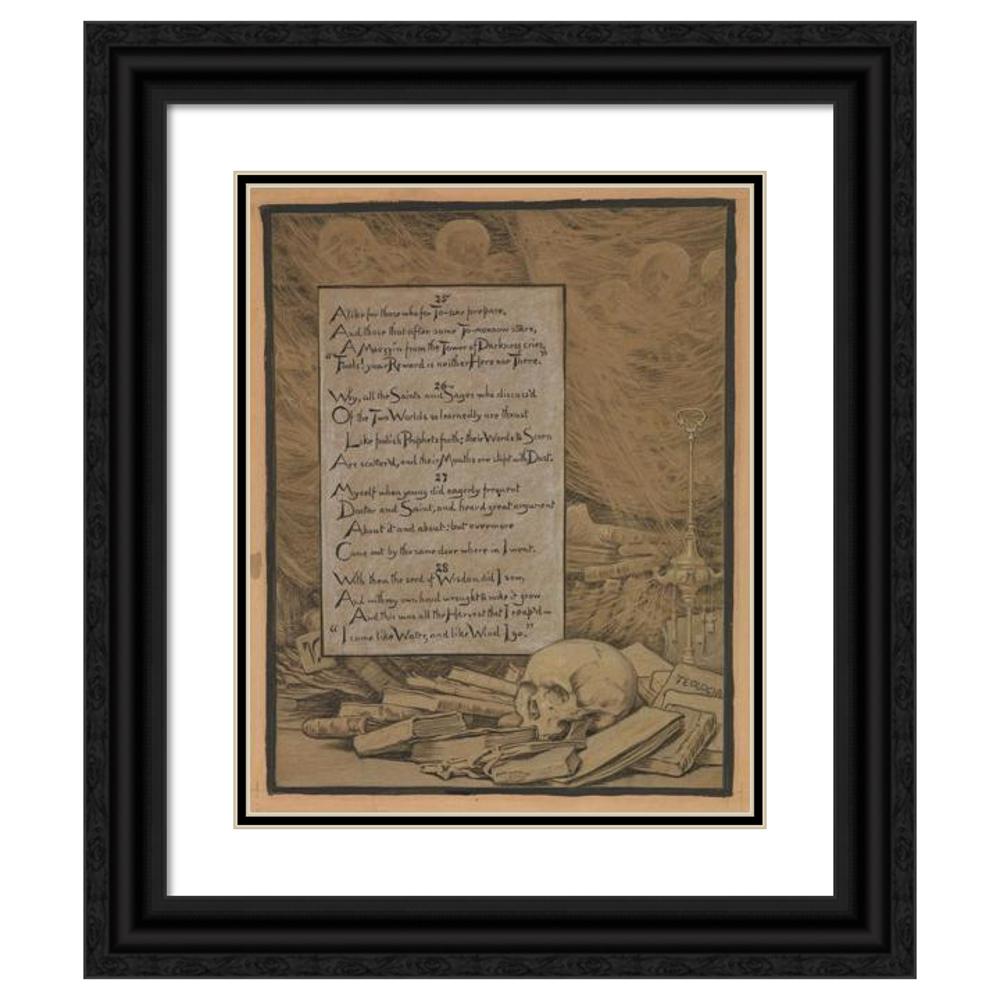 25
Alike for those who for To-day prepare,
And those that after some To-morrow stare,
A Muezzin from the Tower of Darkness cries,
"Fools! your Reward is neither Here nor There."
26
Why, all the Saints and Sages who discuss'd
Of the Two Worlds so learnedly are thrust
Like foolish Prophets forth; their Words to Scorn
Are scatter'd, and their Mouths are stopt with Dust.
27
Myself when young did eagerly frequent
Doctor and Saint, and heard great argument
About it and about: but evermore
Came out by the same door where in I went.
28
With them the seed of Wisdom did I sow,
And with my own hand wrought to make it grow
And this was all the Harvest that I reap'd—
"I came like Water, and like Wind I go."